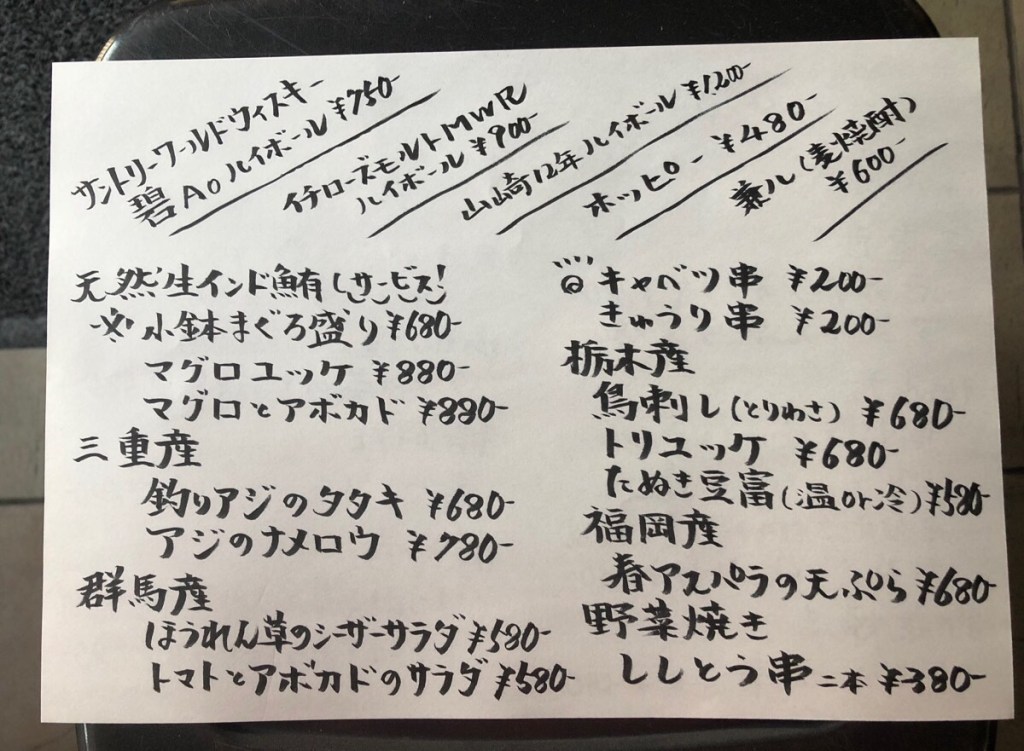 サントリーワールドウィスキー
碧Aoハイボール ¥750-
イチローズモルトMWR
ハイボール ¥900-
山崎12年ハイボール ¥1,200-
ホッピー ¥480-
兼八(麦焼酎)
¥600-
天然生インド鮪 サービス!
小鉢まぐろ盛り ¥680-
マグロユッケ ¥880-
マグロとアボカド ¥880-
三重産
釣りアジのタタキ ¥680-
アジのナメロウ ¥780-
群馬産
ほうれん草のシーザーサラダ ¥580-
トマトとアボカドのサラダ ¥580-
キャベツ串 ¥200-
きゅうり串 ¥200-
栃木産
鳥刺し(とりわさ) ¥680-
トリユッケ ¥680-
たぬき豆富(温or冷) ¥580-
福岡産
春アスパラの天ぷら ¥680-
野菜焼き
ししとう串 二本 ¥380-